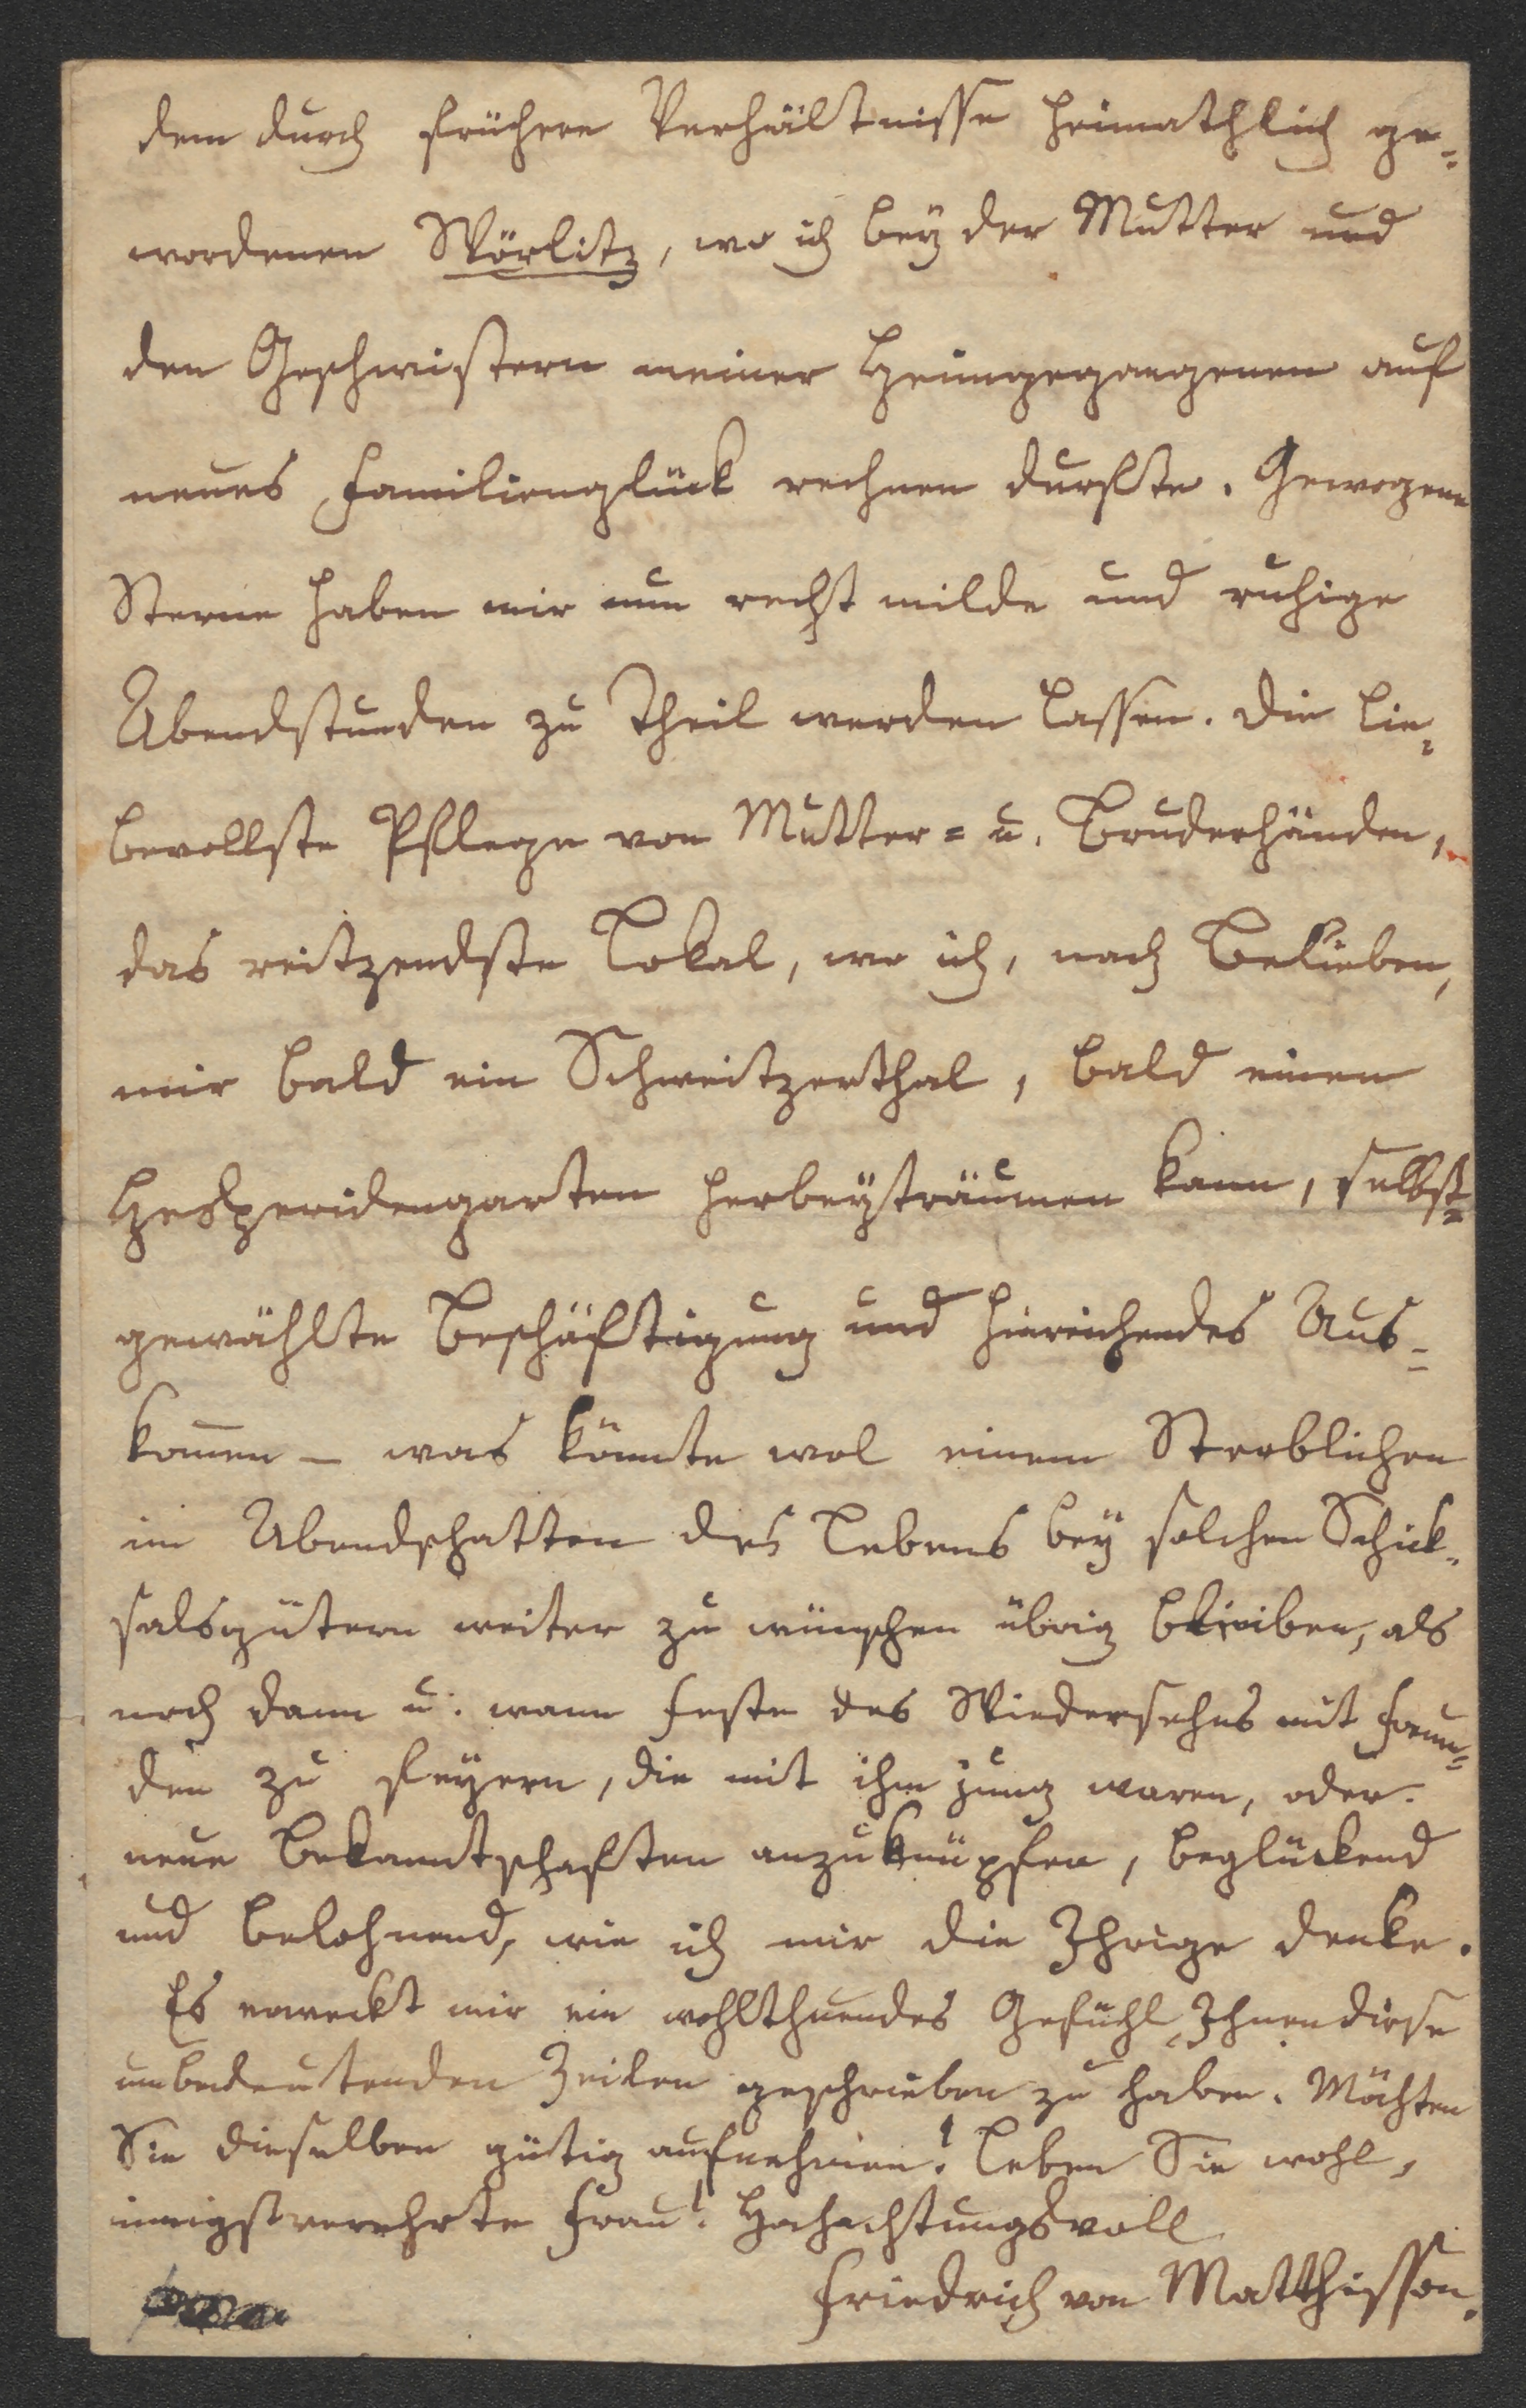 dem durch frühere Verhältnisse heimathlich ge=
wordenen Wörlitz, wo ich bey der Mutter und
den Geschwistern meiner Heimgegangenen auf
neues Familienglück rechnen durfte. Gewogene
Sterne haben mir nun recht milde und ruhige
Abendstunden zu Theil werden lassen. Die lie=
bevollste Pflege von Mutter= u. Bruderhänden,
das reitzendste Lokal, wo ich, nach Belieben,
mir bald ein Schweitzerthal, bald einen
Hesperidengarten herbeyträumen kann, selbst=
gewählte Beschäftigung und hinreichendes Aus=
kom̅en – was könnte wol einem Sterblichen
im Abendschatten des Lebens bey solchen Schick=
salsgütern weiter zu wünschen übrig bleiben, als
noch dann u. wann Feste des Wiedersehns mit Freun=
den zu feyern, die mit ihm jung waren, oder
neue Bekanntschaften anzuknüpfen, beglückend
und belohnend, wie ich mir die Ihrige denke.
Es erweckt mir ein wohlthuendes Gefühl, Ihnen diese
unbedeutenden Zeilen geschrieben zu haben. Möchten
Sie dieselben gütig aufnehmen! Leben Sie wohl,
innigstverehrte Frau! Hochachtungsvoll
Friedrich von Matthisson.